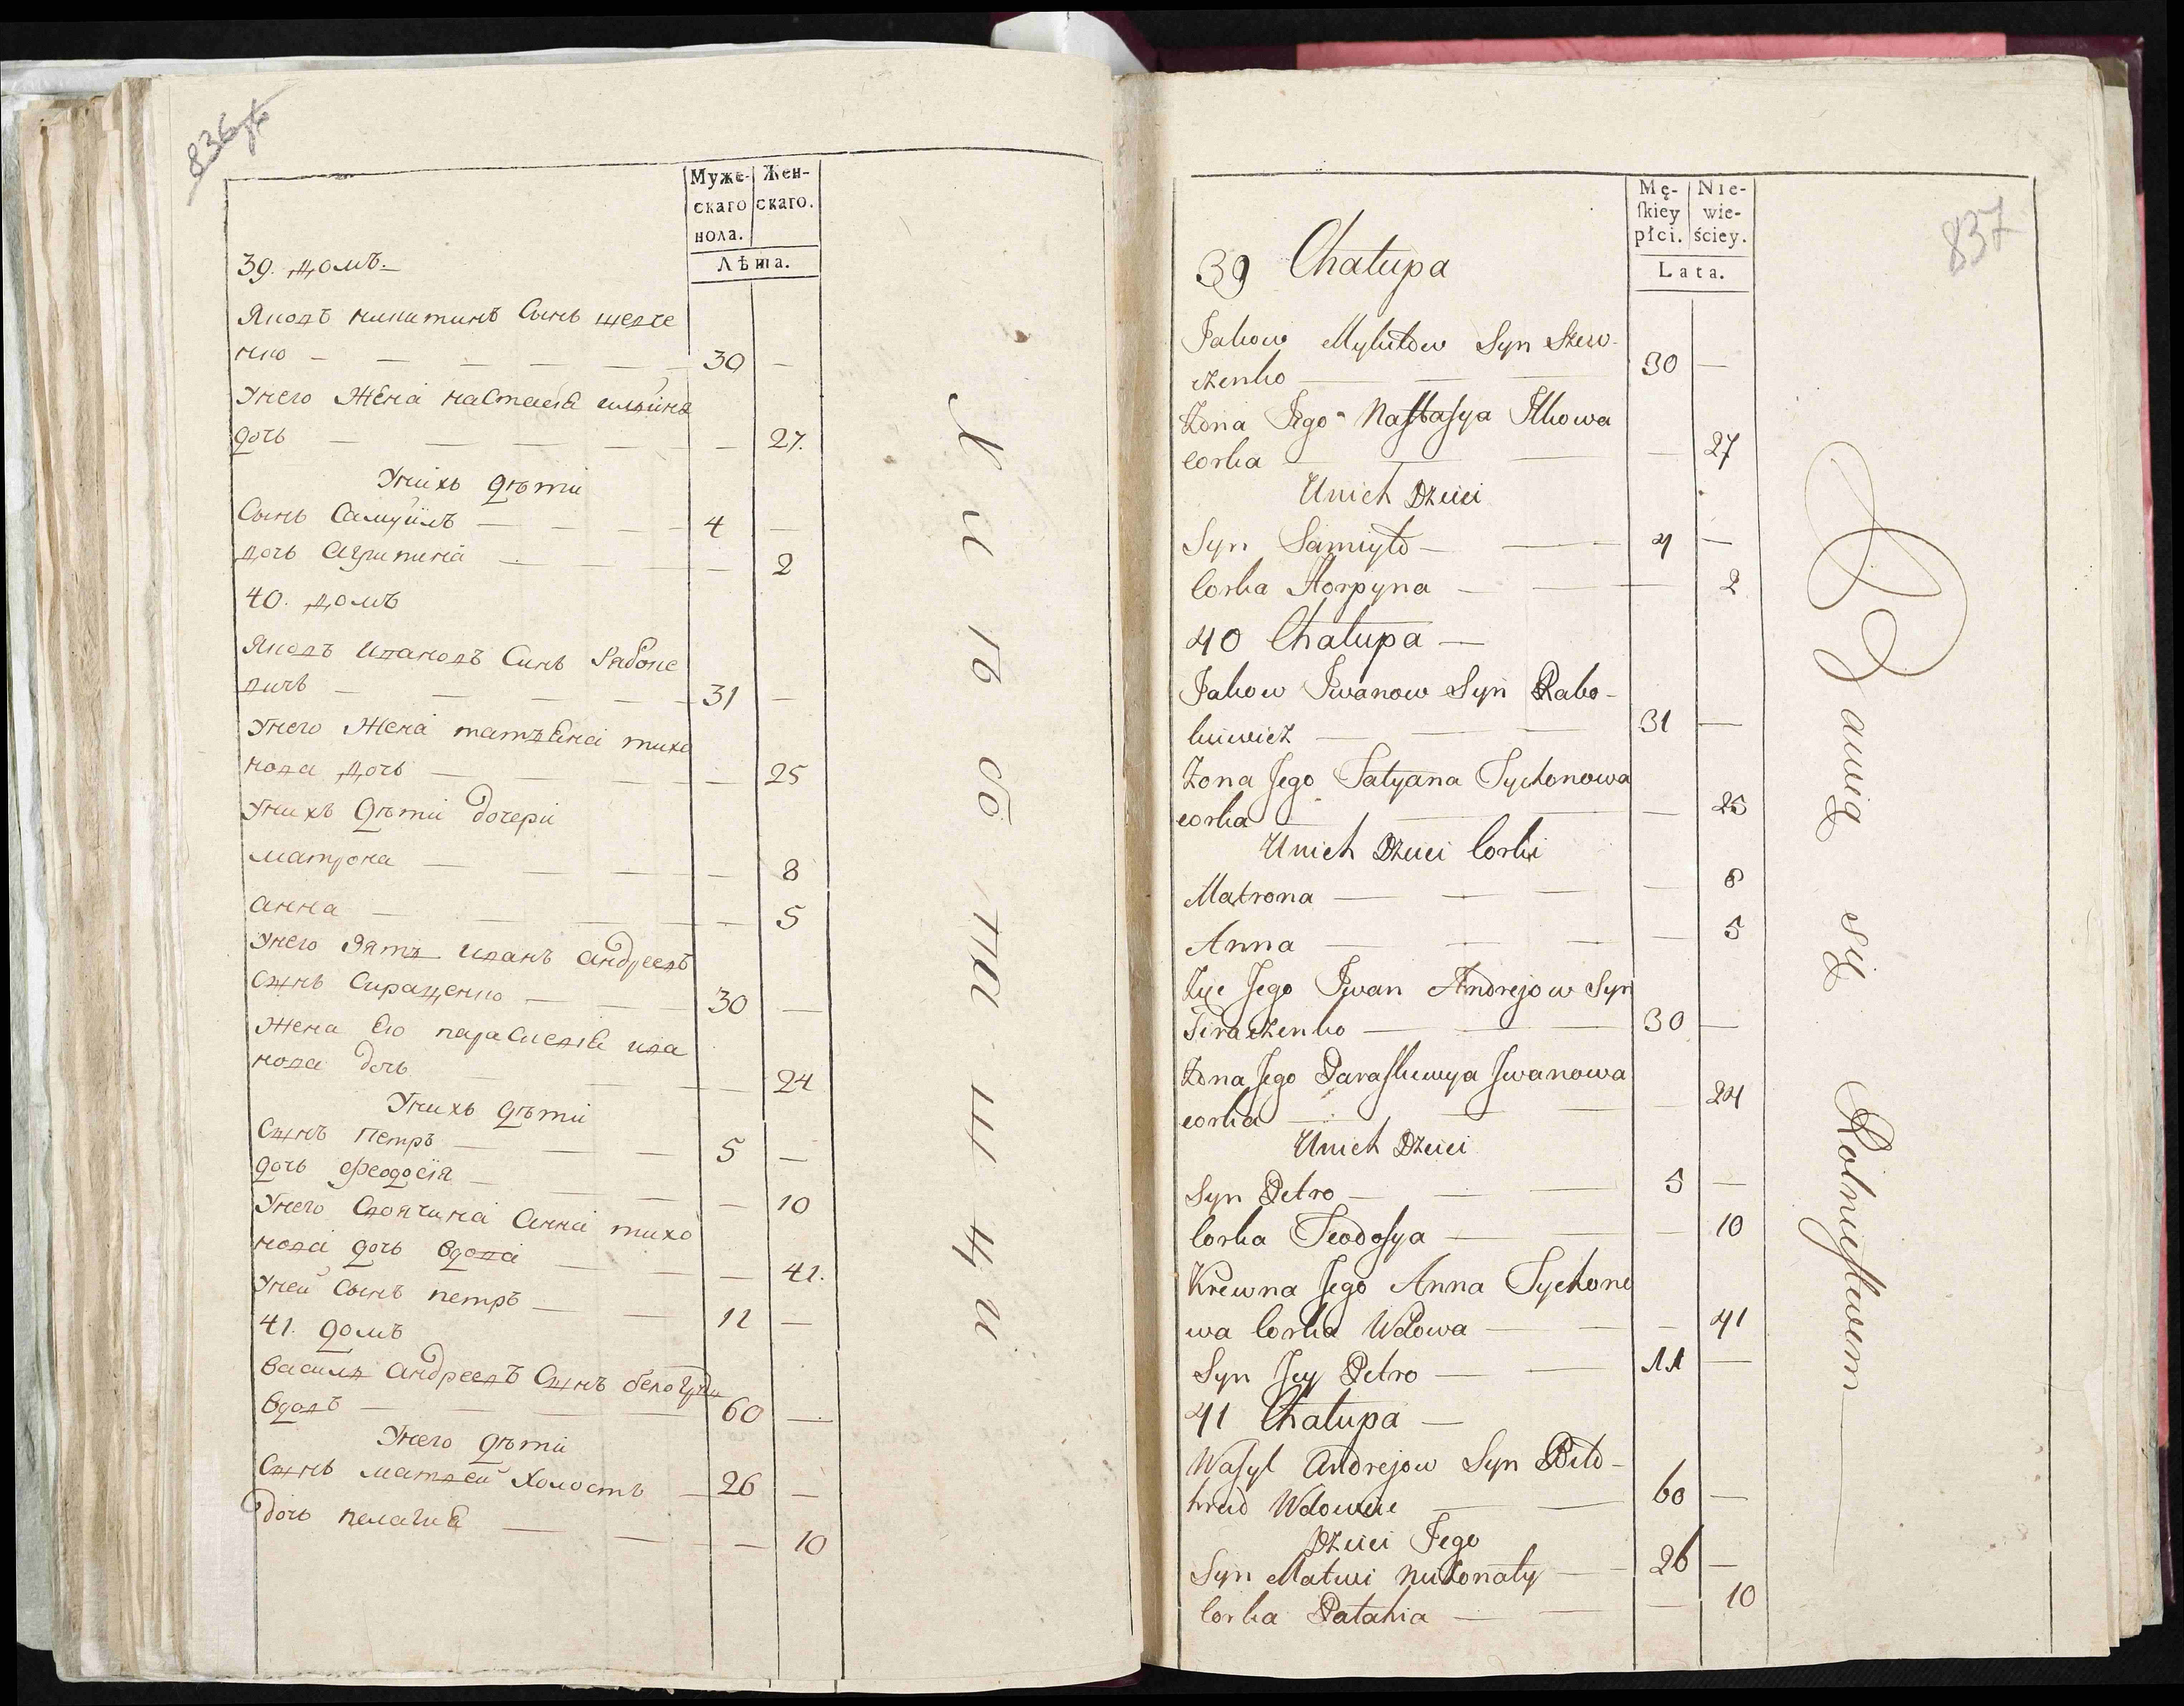 836
Муже- Жен-
скаго скаго.
пола.
Лѣта.
39. домъ.
Яковъ никитинъ Сынъ шевче
нко — 30 —
Унего Жена настасія ильина
дочь — 27.
Унихъ дѣти
Сынъ Самуилъ — 4 —
дочь Агрипина — 2
40. домъ
Яковъ Ивановъ Синъ Рабоке
вичъ — 31 —
Унего Жена татъяна тихо
нова дочь — 25
Унихъ дѣти дочери
матрона — 8
анна — 5
Унего Зять иванъ андреевъ
Сынъ Сиращенко — 30 —
Жена Его параскевія ива
нова дочь — 24
Унихъ дѣти
Сынъ Петръ — 5 —
дочь Феодосія — 10
Унего Своячина Анна тихо
нова дочь вдова — 41.
Уней Сынъ петръ — 11 —
41. домъ
василь андреевъ Сынъ
вдовъ — 60 —
Унего дѣти
Сынъ матвей Холостъ — 26 —
дочь пелагия — 10
837
Mę- Nie-
ſkiey wie-
płci. ściey.
Lata.
39 Chałupa
Jakow Mykitow Syn Szew-
czenko — 30 —
Żona Jego Naſtaſya Ilkowa
corka — 27
Unich Dzieci
Syn Samiyło — 4 —
Corka Horpyna — 2
40 Chałupa —
Jakow Iwanow Syn Rabo-
kiewicz — 31 —
Żona Jego Tatyana Tychonowa
corka — 25
Unich Dzieci Corki
Matrona — 8
Anna — 5
Zięc Jego Iwan Andrejow Syn
Siraczenko — 30 —
Żona Jego Paraſkewya Iwanowa
corka — 24
Unich Dzieci
Syn Petro — 5 —
Corka Teodoſya — 10
Krewna Jego Anna Tychono
wa Corka Wdowa — 41
Syn Jey Petro — 11 —
41 Chałupa —
Waſyl Andrejow Syn Biło-
hrud Wdowiec — 60 —
Dzieci Jego
Syn Matwi nieżonaty — 26 —
Corka Pałahia — 10
Bawią się Rolnictwem